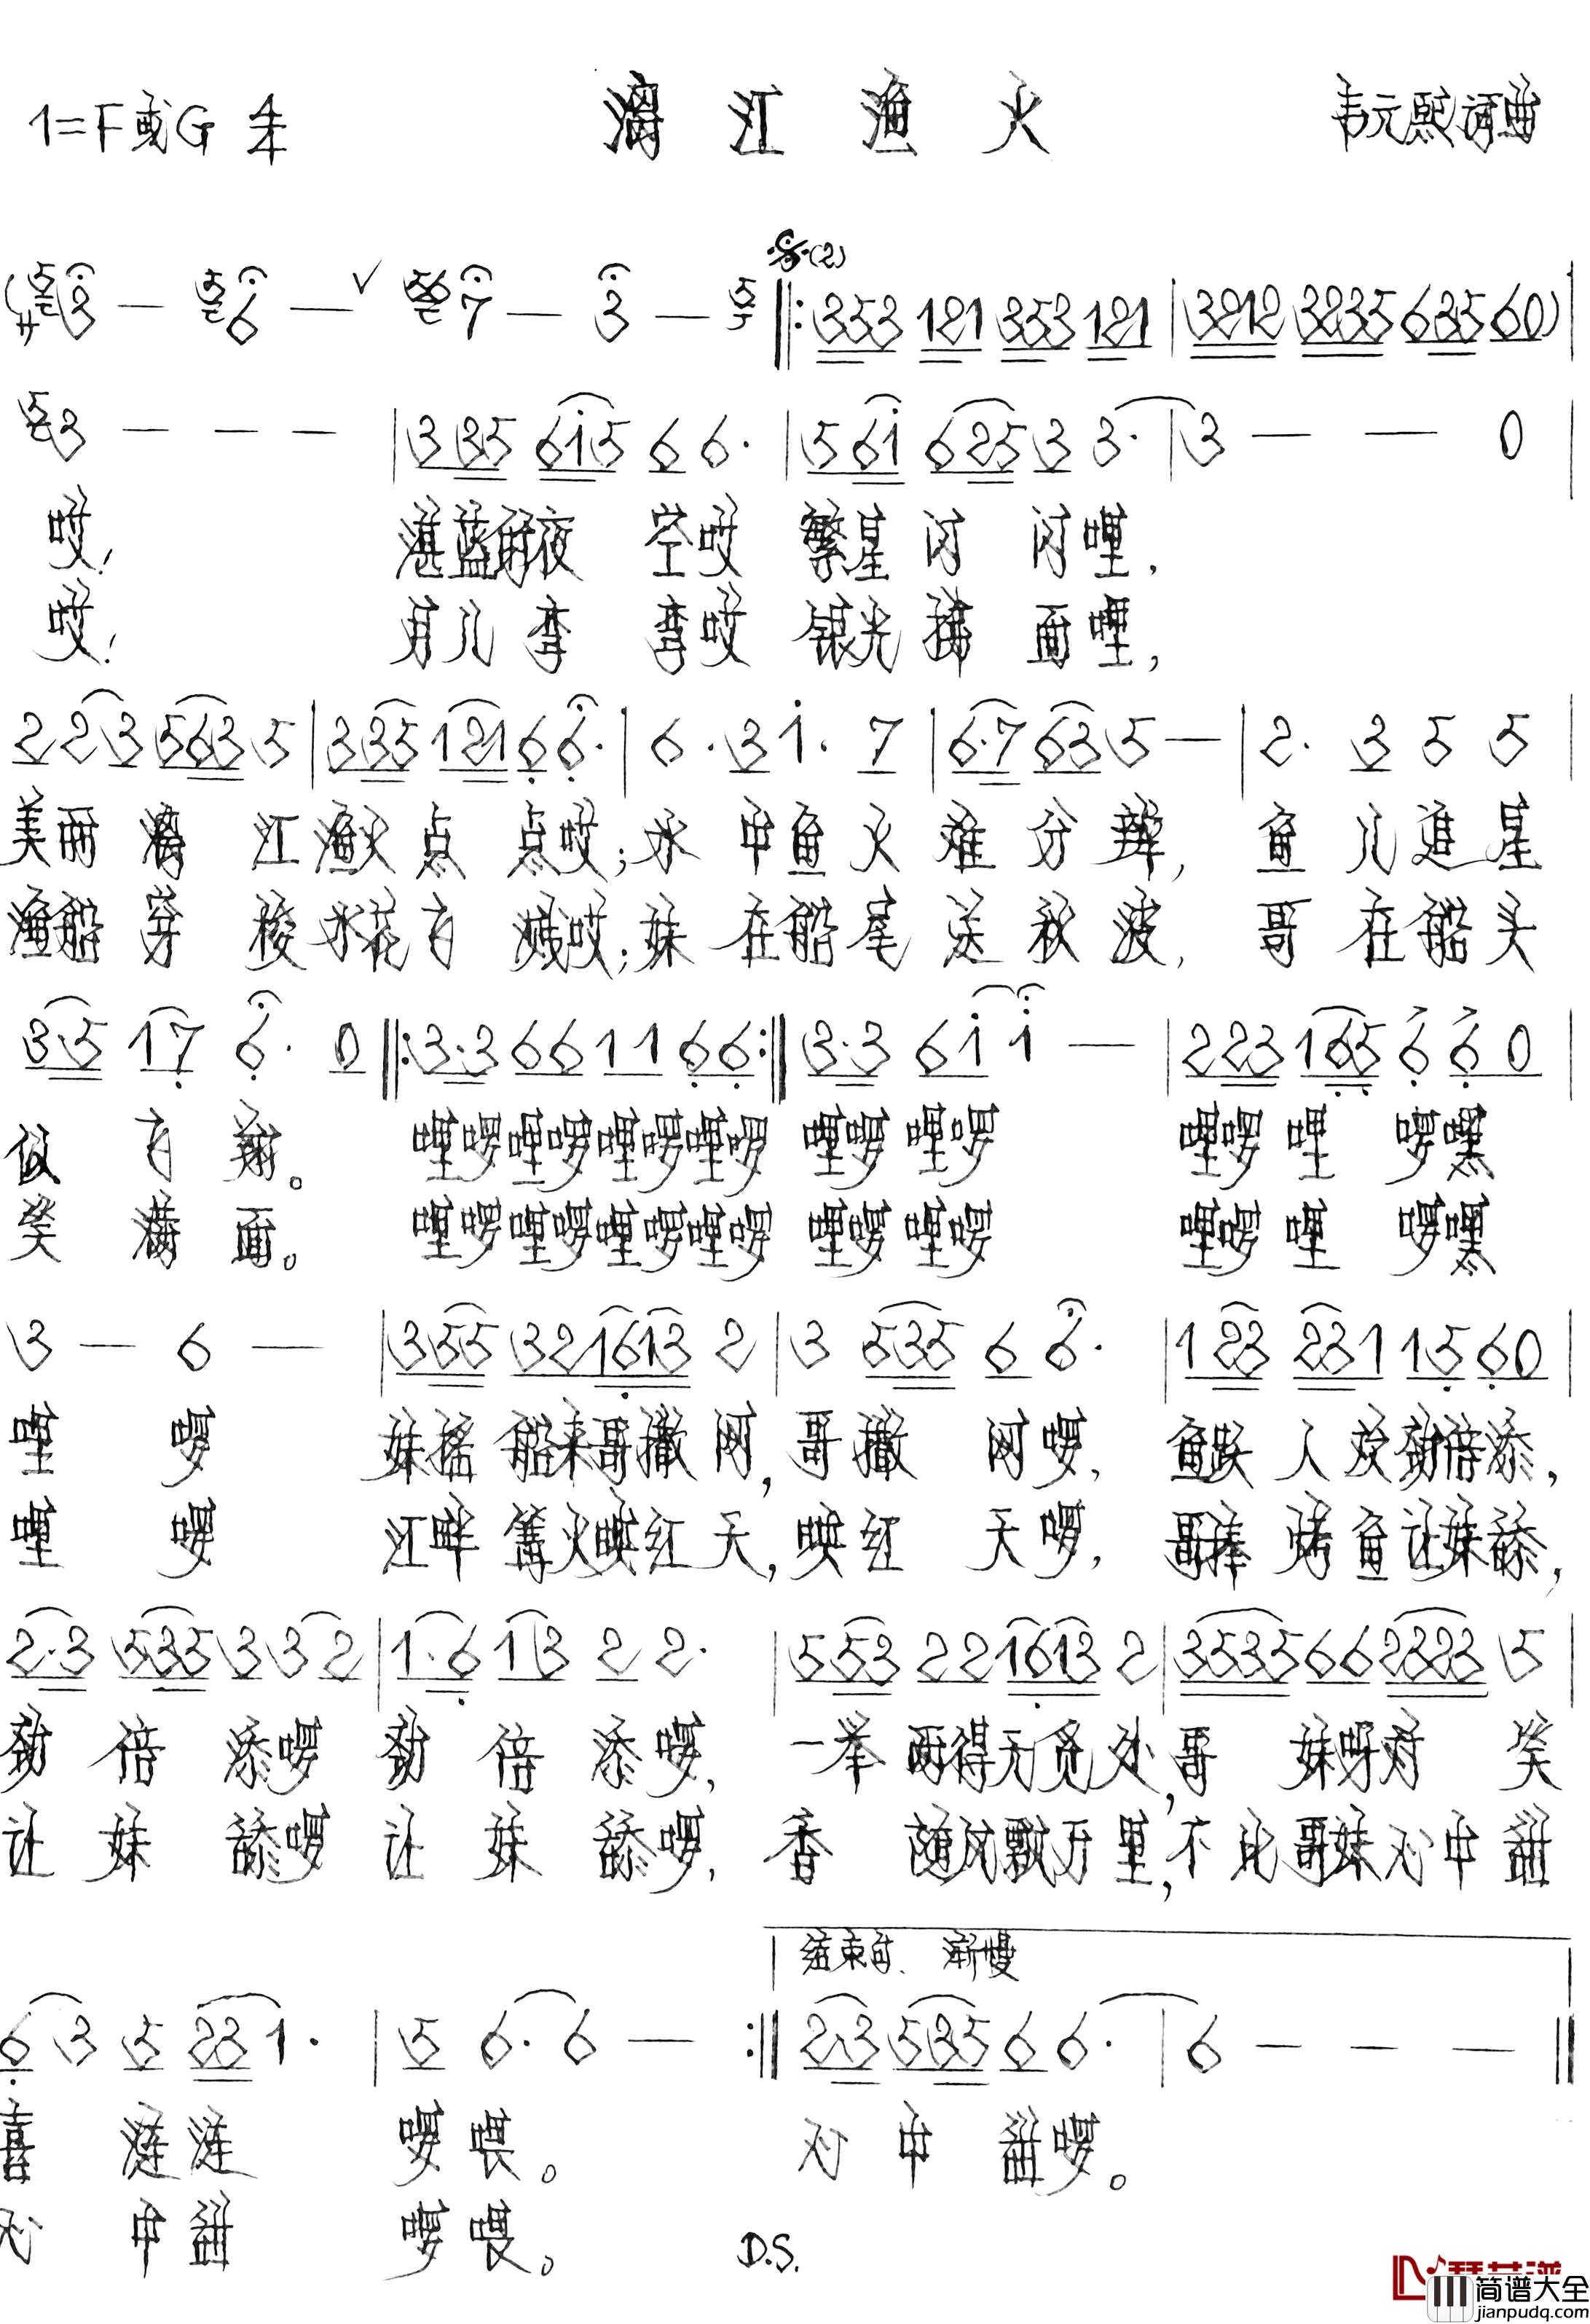 1=F或G 4/4 漓江渔火 韦元熙词曲
(2)
353 121 353 121 | 3212 3235 635 60)
3 — — — | 3 35 615 6 6· | 5 61 625 3 3· | 3 — — 0 |
哎! 湛蓝的夜空哎 繁星闪闪哩,
哎! 月儿弯弯哎 银光拂面哩,
2 2 3 563 5 | 3 35 121 6 6· | 6· 3 1· 7 | 6·7 63 5 — | 2· 3 5 5
美丽漓江渔火点点哎;水中鱼火难分辨,鱼儿追星
渔船穿梭水花飞溅哎;妹在船尾送秋波,哥在船头
35 17 6· 0 ‖: 3·3 66 11 66 :‖ 3·3 61 1 — | 223 165 6 60 |
似飞翔。 哩啰哩啰哩啰哩啰 哩啰哩啰 哩啰哩啰嘿
笑满面。 哩啰哩啰哩啰哩啰 哩啰哩啰 哩啰哩啰嘿
3 — 6 — | 355 321613 2 | 3 535 6 6· | 123 231 15 60 |
哩啰 妹摇船来哥撒网,哥撒网啰,鱼跃人欢劲倍添,
哩啰 江畔篝火映红天,映红天啰,哥捧烤鱼让妹舔,
2·3 535 3 3 2 | 1·6 13 2 2· | 553 221613 2 | 3535 66 2323 5 |
劲倍添啰劲倍添啰,一举两得无觅处,哥妹呀对笑
让妹舔啰让妹舔啰,香随风飘万里,不比哥妹心中甜
结束句. 渐慢
6 3 5 23 1· | 5 6· 6 — :‖ 2·3 535 6 6· | 6 — — — ‖
喜涟涟啰喂。 心中甜啰。
心中甜啰喂。 D.S.
简谱大全
jianpudq.com